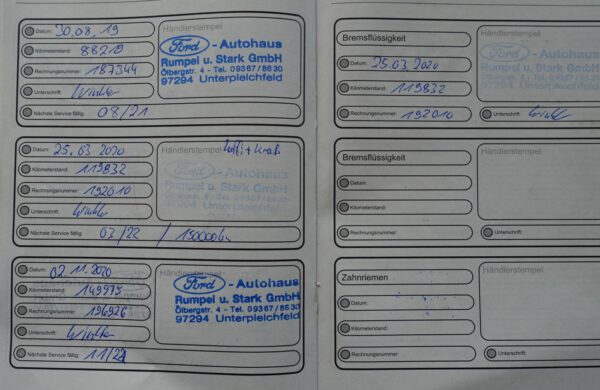 Datum: 30.08.19
Händlerstempel
Kilometerstand: 88219
Ford - Autohaus
Rumpel u. Stark GmbH
Ölbergstr. 4 - Tel. 09367/8630
97294 Unterpleichfeld
Rechnungsnummer: 187344
Unterschrift:
Nächste Service fällig: 08/21
Datum: 25.03 2020
Händlerstempel
Kilometerstand: 119832
Ford - Autohaus
Rumpel u. Stark GmbH
Ölbergstr. 4 - Tel. 09367/8630
97294 Unterpleichfeld
Rechnungsnummer: 192010
Unterschrift:
Nächste Service fällig: 03/22 / 150000km
Datum: 02.11.2020
Händlerstempel
Kilometerstand: 149975
Ford - Autohaus
Rumpel u. Stark GmbH
Ölbergstr. 4 - Tel. 09367/8630
97294 Unterpleichfeld
Rechnungsnummer: 196926
Unterschrift:
Nächste Service fällig: 11/22
Bremsflüssigkeit
Händlerstempel
Datum: 25.03.2020
Kilometerstand: 119832
Rechnungsnummer: 192010
Unterschrift:
Bremsflüssigkeit
Händlerstempel
Datum:
Kilometerstand:
Rechnungsnummer:
Unterschrift:
Zahnriemen
Händlerstempel
Datum:
Kilometerstand:
Rechnungsnummer:
Unterschrift: